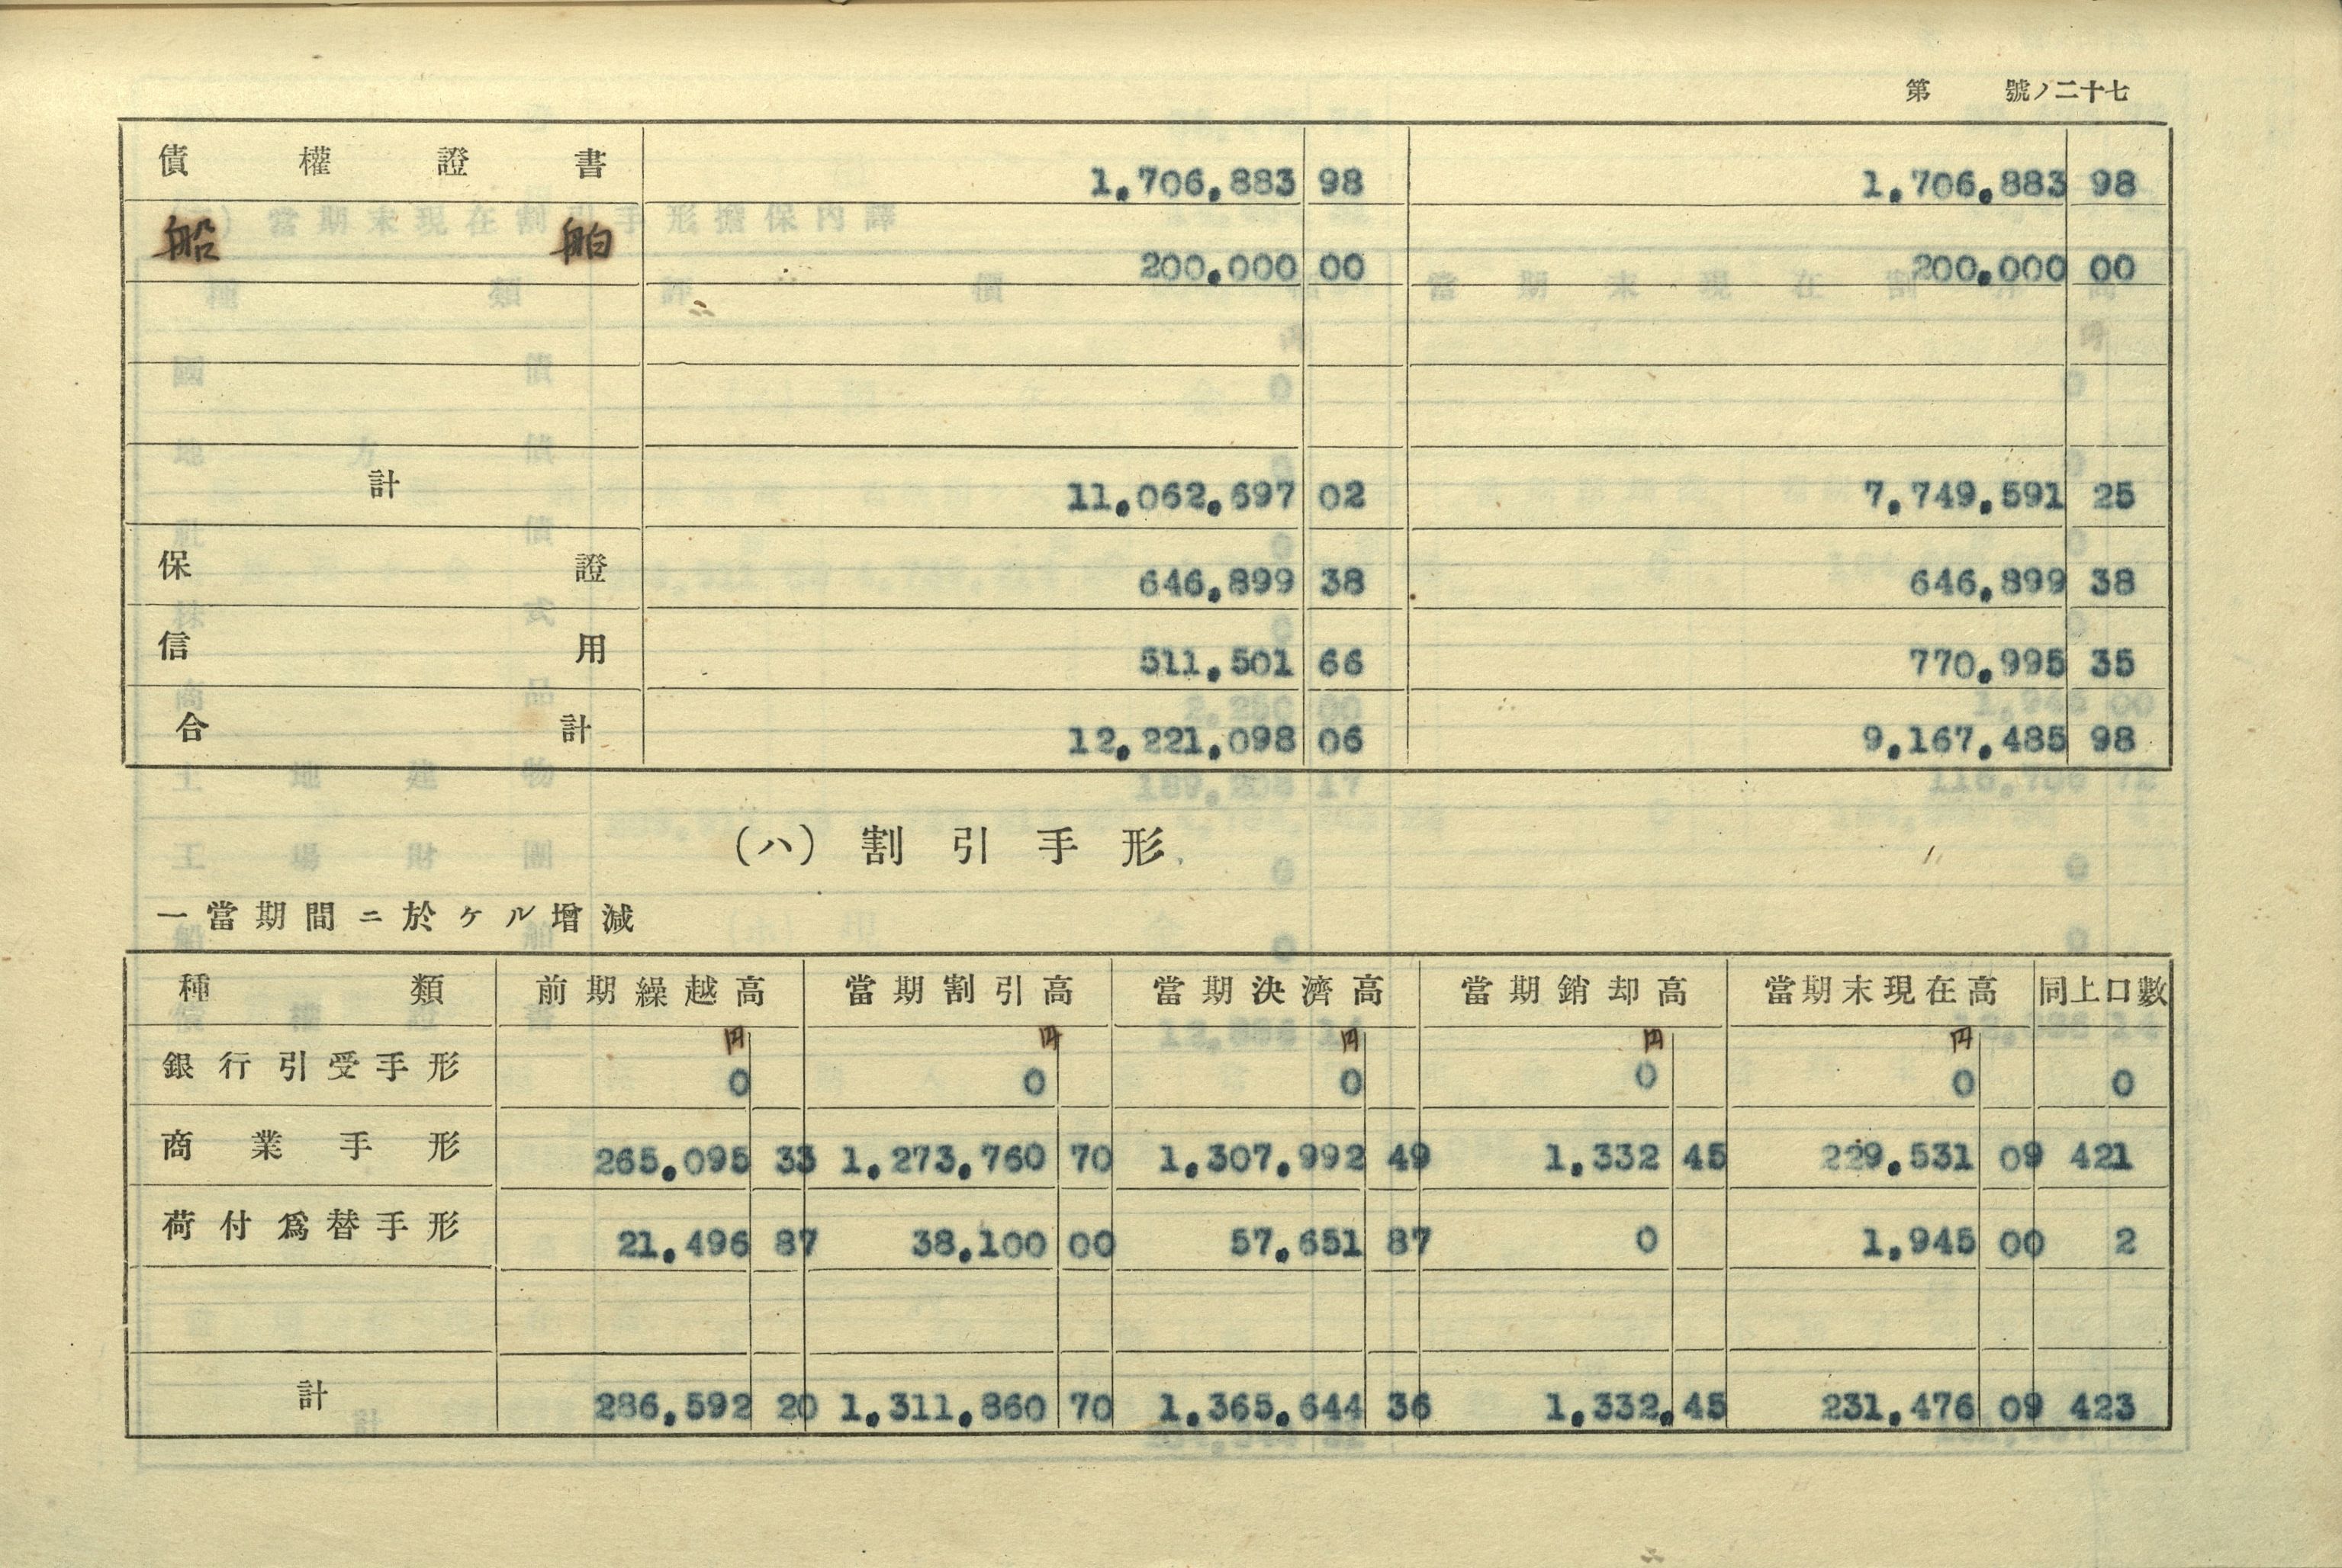 第 號ノ二十七
債權證書 1,706,883 98 1,706,883 98
船舶 200,000 00 200,000 00
計 11,062,697 02 7,749,591 25
保證 646,899 38 646,899 38
信用 511,501 66 770,995 35
合計 12,221,098 06 9,167,485 98
(ハ) 割引手形
一當期間ニ於ケル增減
種類 前期繰越高 當期割引高 當期決濟高 當期銷却高 當期末現在高 同上口數
円 円 円 円 円
銀行引受手形 0 0 0 0 0 0
商業手形 265,095 33 1,273,760 70 1,307,992 49 1,332 45 229,531 09 421
荷付爲替手形 21,496 87 38,100 00 57,651 87 0 1,945 00 2
計 286,592 20 1,311,860 70 1,365,644 36 1,332,45 231,476 09 423